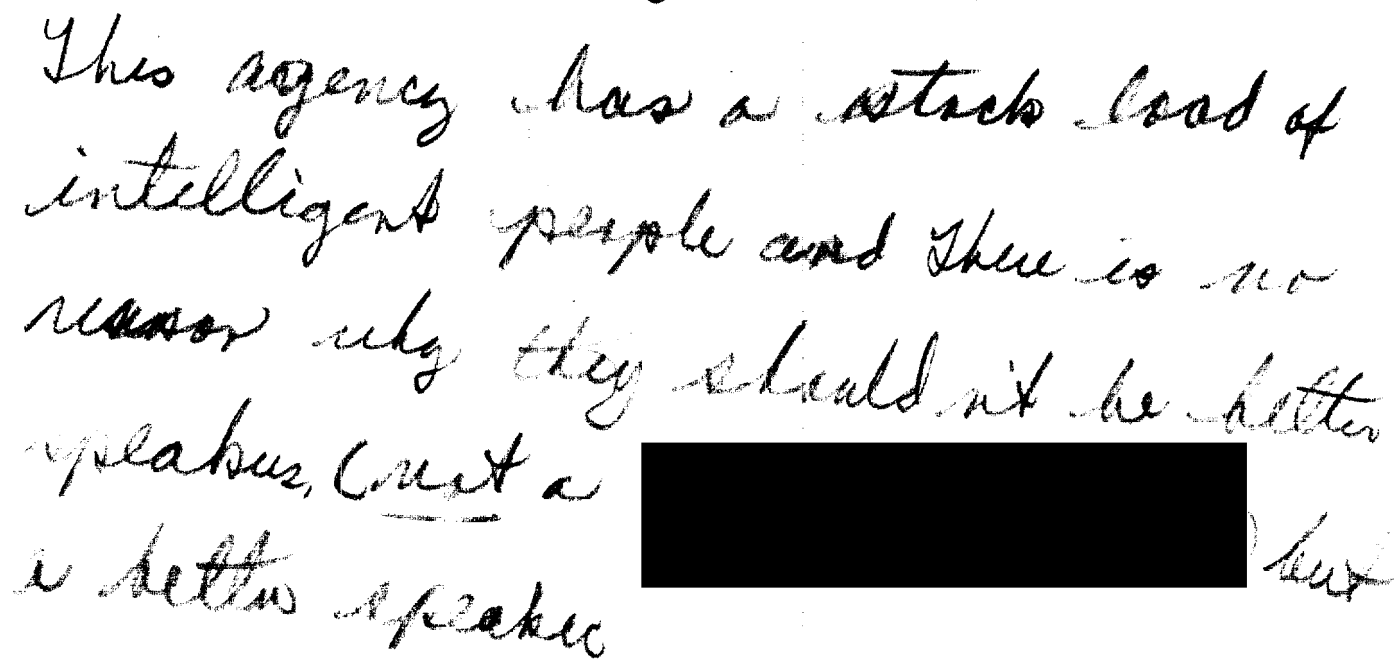 This agency has a stack load of
intelligent people and there is no
reason why they shouldn't be better
speakers, (not a ) but
a better speaker